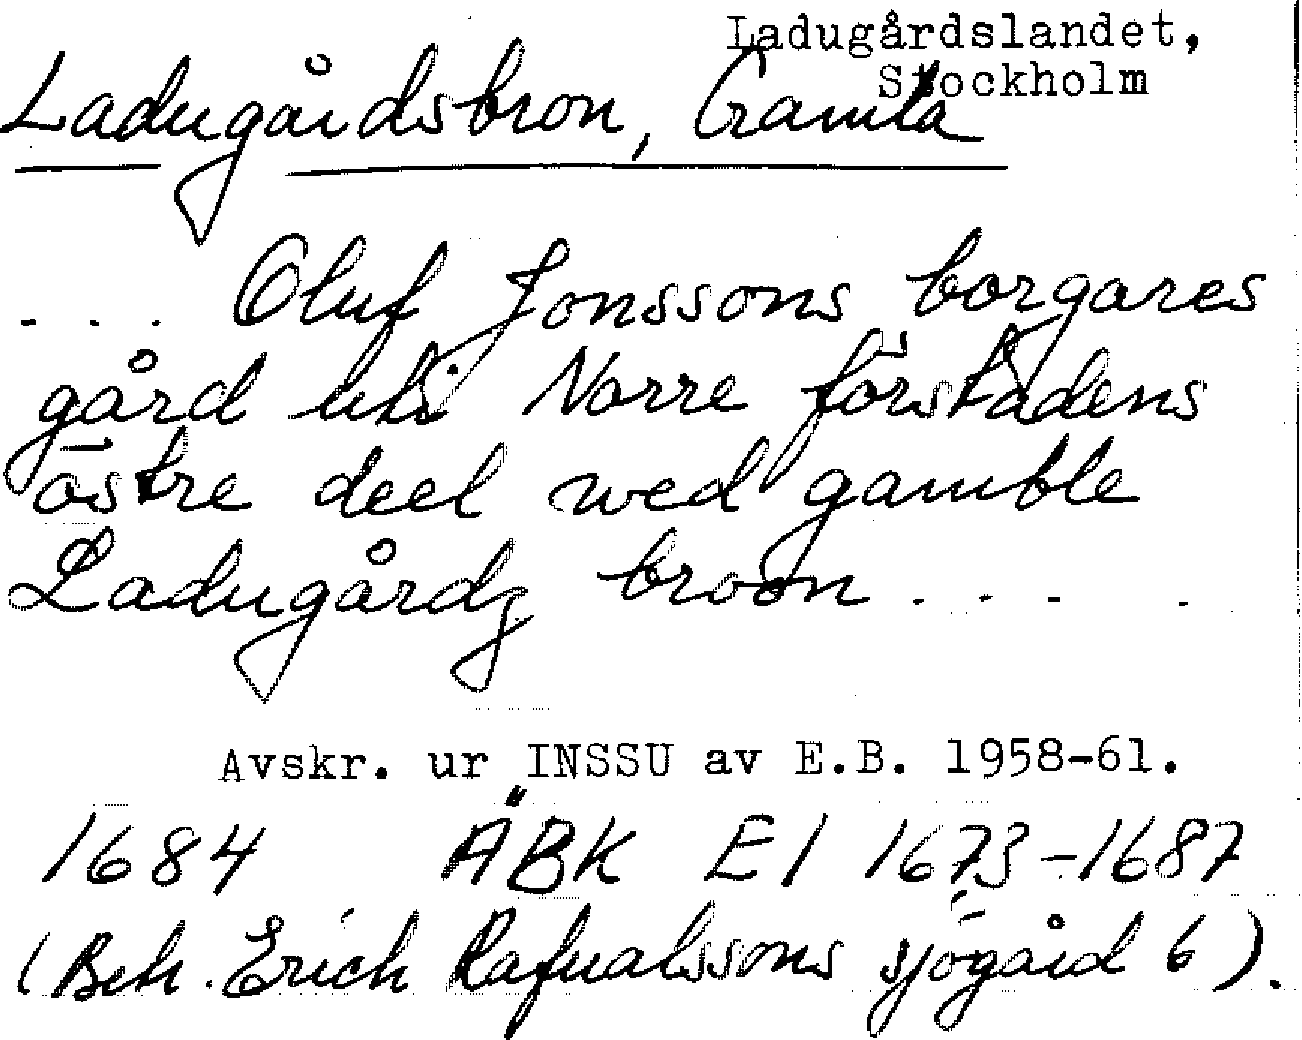 Ladugårdslandet,
Stockholm
Ladugårdsbron, Gamla
... Oluf Jonssons borgares
gård uti Norre förstadens
östre deel wed gamble
Ladugårdz broon ....
Avskr. ur INSSU av E.B. 1958-61.
1684 ÄBK E1 1673-1687
(Beh. Erich Rafualssons sjögård 6).